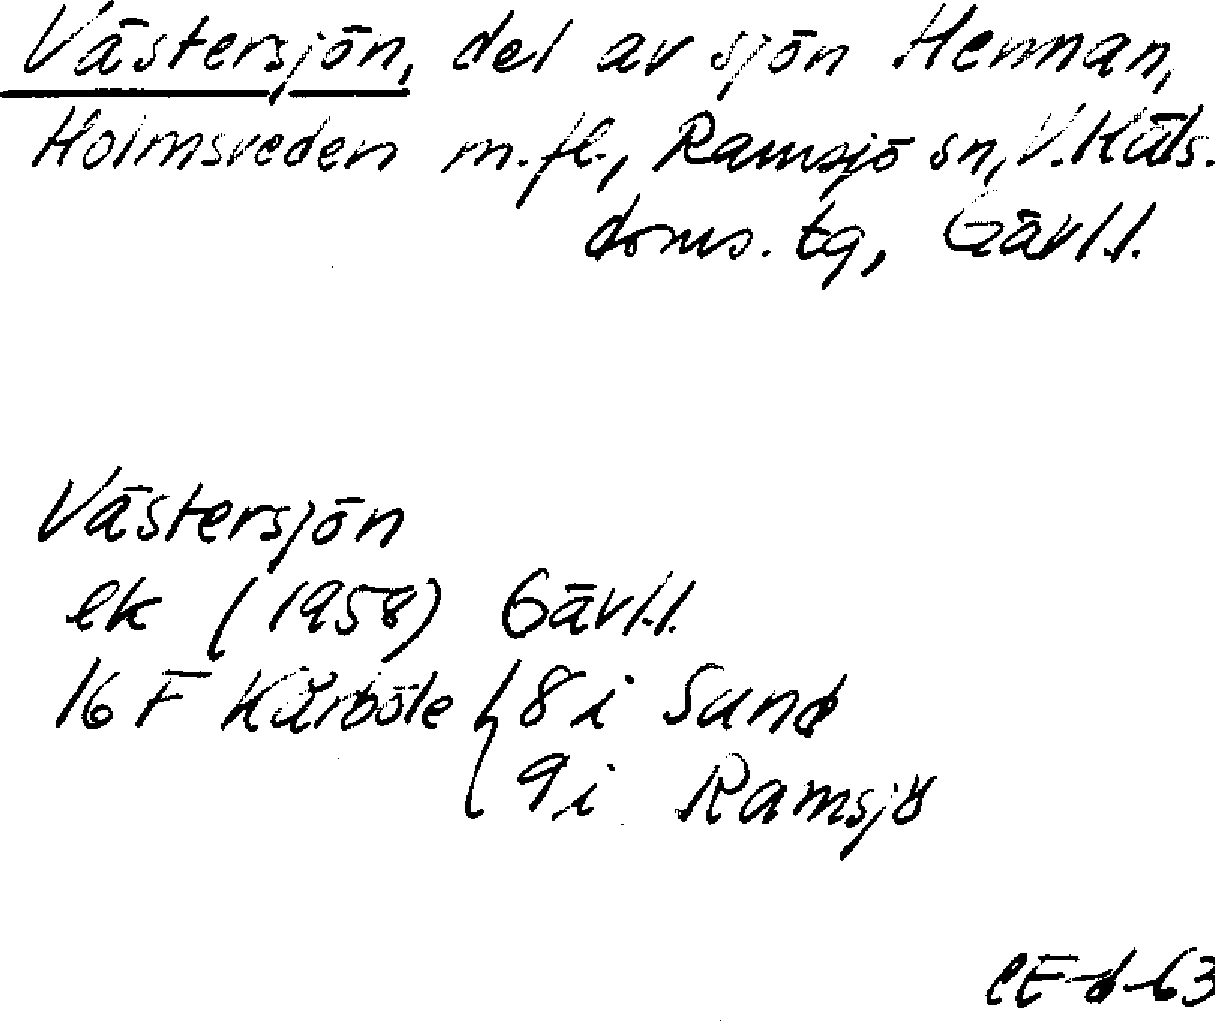 Västersjön, del av sjön Hennan,
Holmsveden m.fl., Ramsjö sn, V. Häls.
doms. tg, Gävl.l.
Västersjön
ek (1958) Gävl.l.
16 F Kårböle { 8 i Sund
9 i Ramsjö
CE-d-63